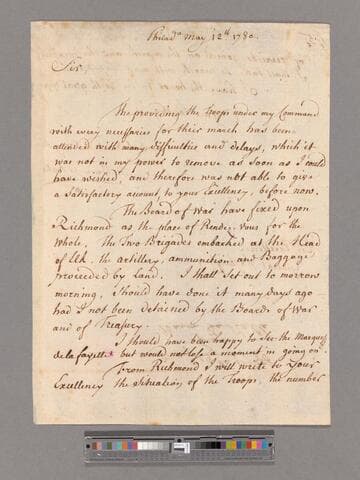 Philada May 12th 1780.
Sir
The providing the Troops under my Command
with every necessaries for their march has been
attended with many difficulties and delays, which it
was not in my power to remove as soon as I could
have wished, and therefore was not able to give
a Satisfactory account, to your Excellency, before now.
The Board of War have fixed upon
Richmond as the place of Rendez-vous for the
whole, the Two Brigades embarked at the Head
of Elk. the artillery, ammunition and Baggage
proceeded by Land. I shall Set out to morrow
morning, I should have done it many days ago
had I not been detained by the Boards of War
and of Treasury.
I should have been happy to See the Marquis
de la fayette but would not lose a moment in going on.
From Richmond I will write to Your
Excellency the Situation of the Troops, the number